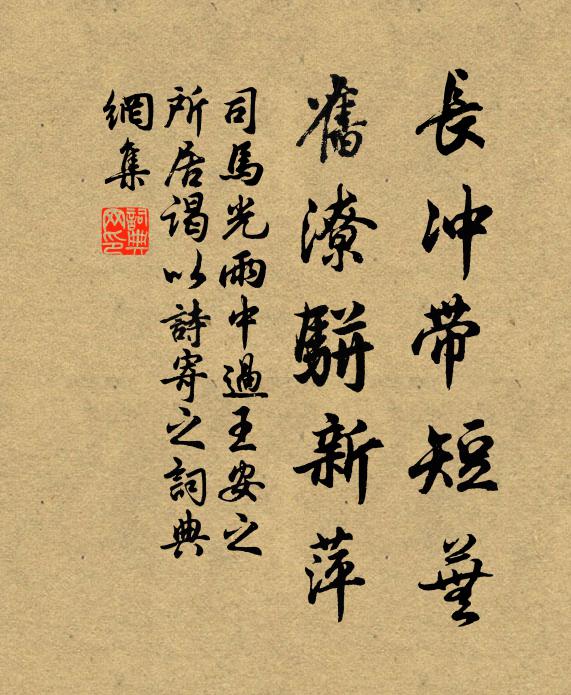 長冲带短蕪
舊潦駢新萍
司馬光雨中過王安之
所居谒以詩寄之詞典
網集
詞典网印